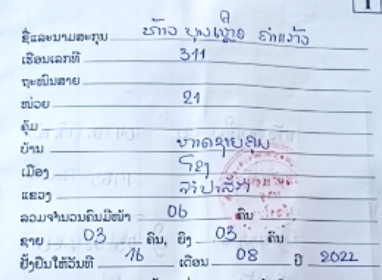 ຊື່ແລະນາມສະກຸນ ທ້າວ ບຸນເຫຼືອ ຄຳແກ້ວ
ເຮືອນເລກທີ 311
ຖະໜົນສາຍ
ໜ່ວຍ 21
ຄຸ້ມ
ບ້ານ ຫາດຊາຍຄູນ
ເມືອງ ໂຂງ
ແຂວງ ຈຳປາສັກ
ລວມຈຳນວນຄົນມີໜ້າ 06 ຄົນ
ຊາຍ 03 ຄົນ, ຍິງ 03 ຄົນ
ຢັ້ງຢືນໃຫ້ວັນທີ 16 ເດືອນ 08 ປີ 2022